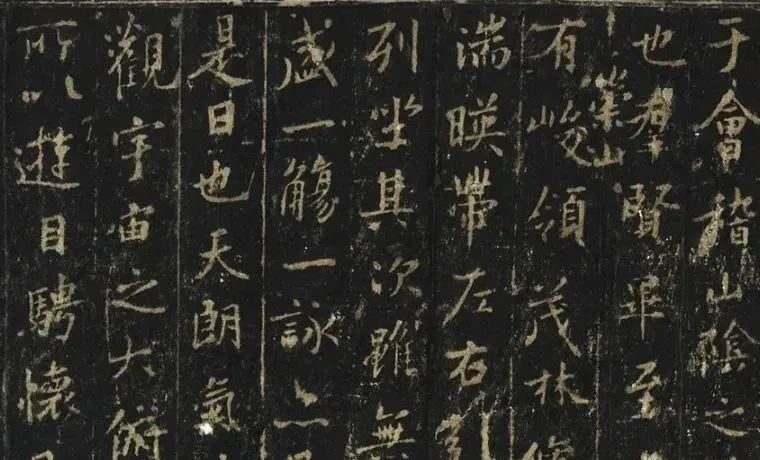 于會稽山陰之
也羣賢畢至
崇山
有峻領茂林
湍暎帶左右引
列坐其次雖無
盛一觴一詠亦
是日也天朗氣
觀宇宙之大俯
所以遊目騁懷